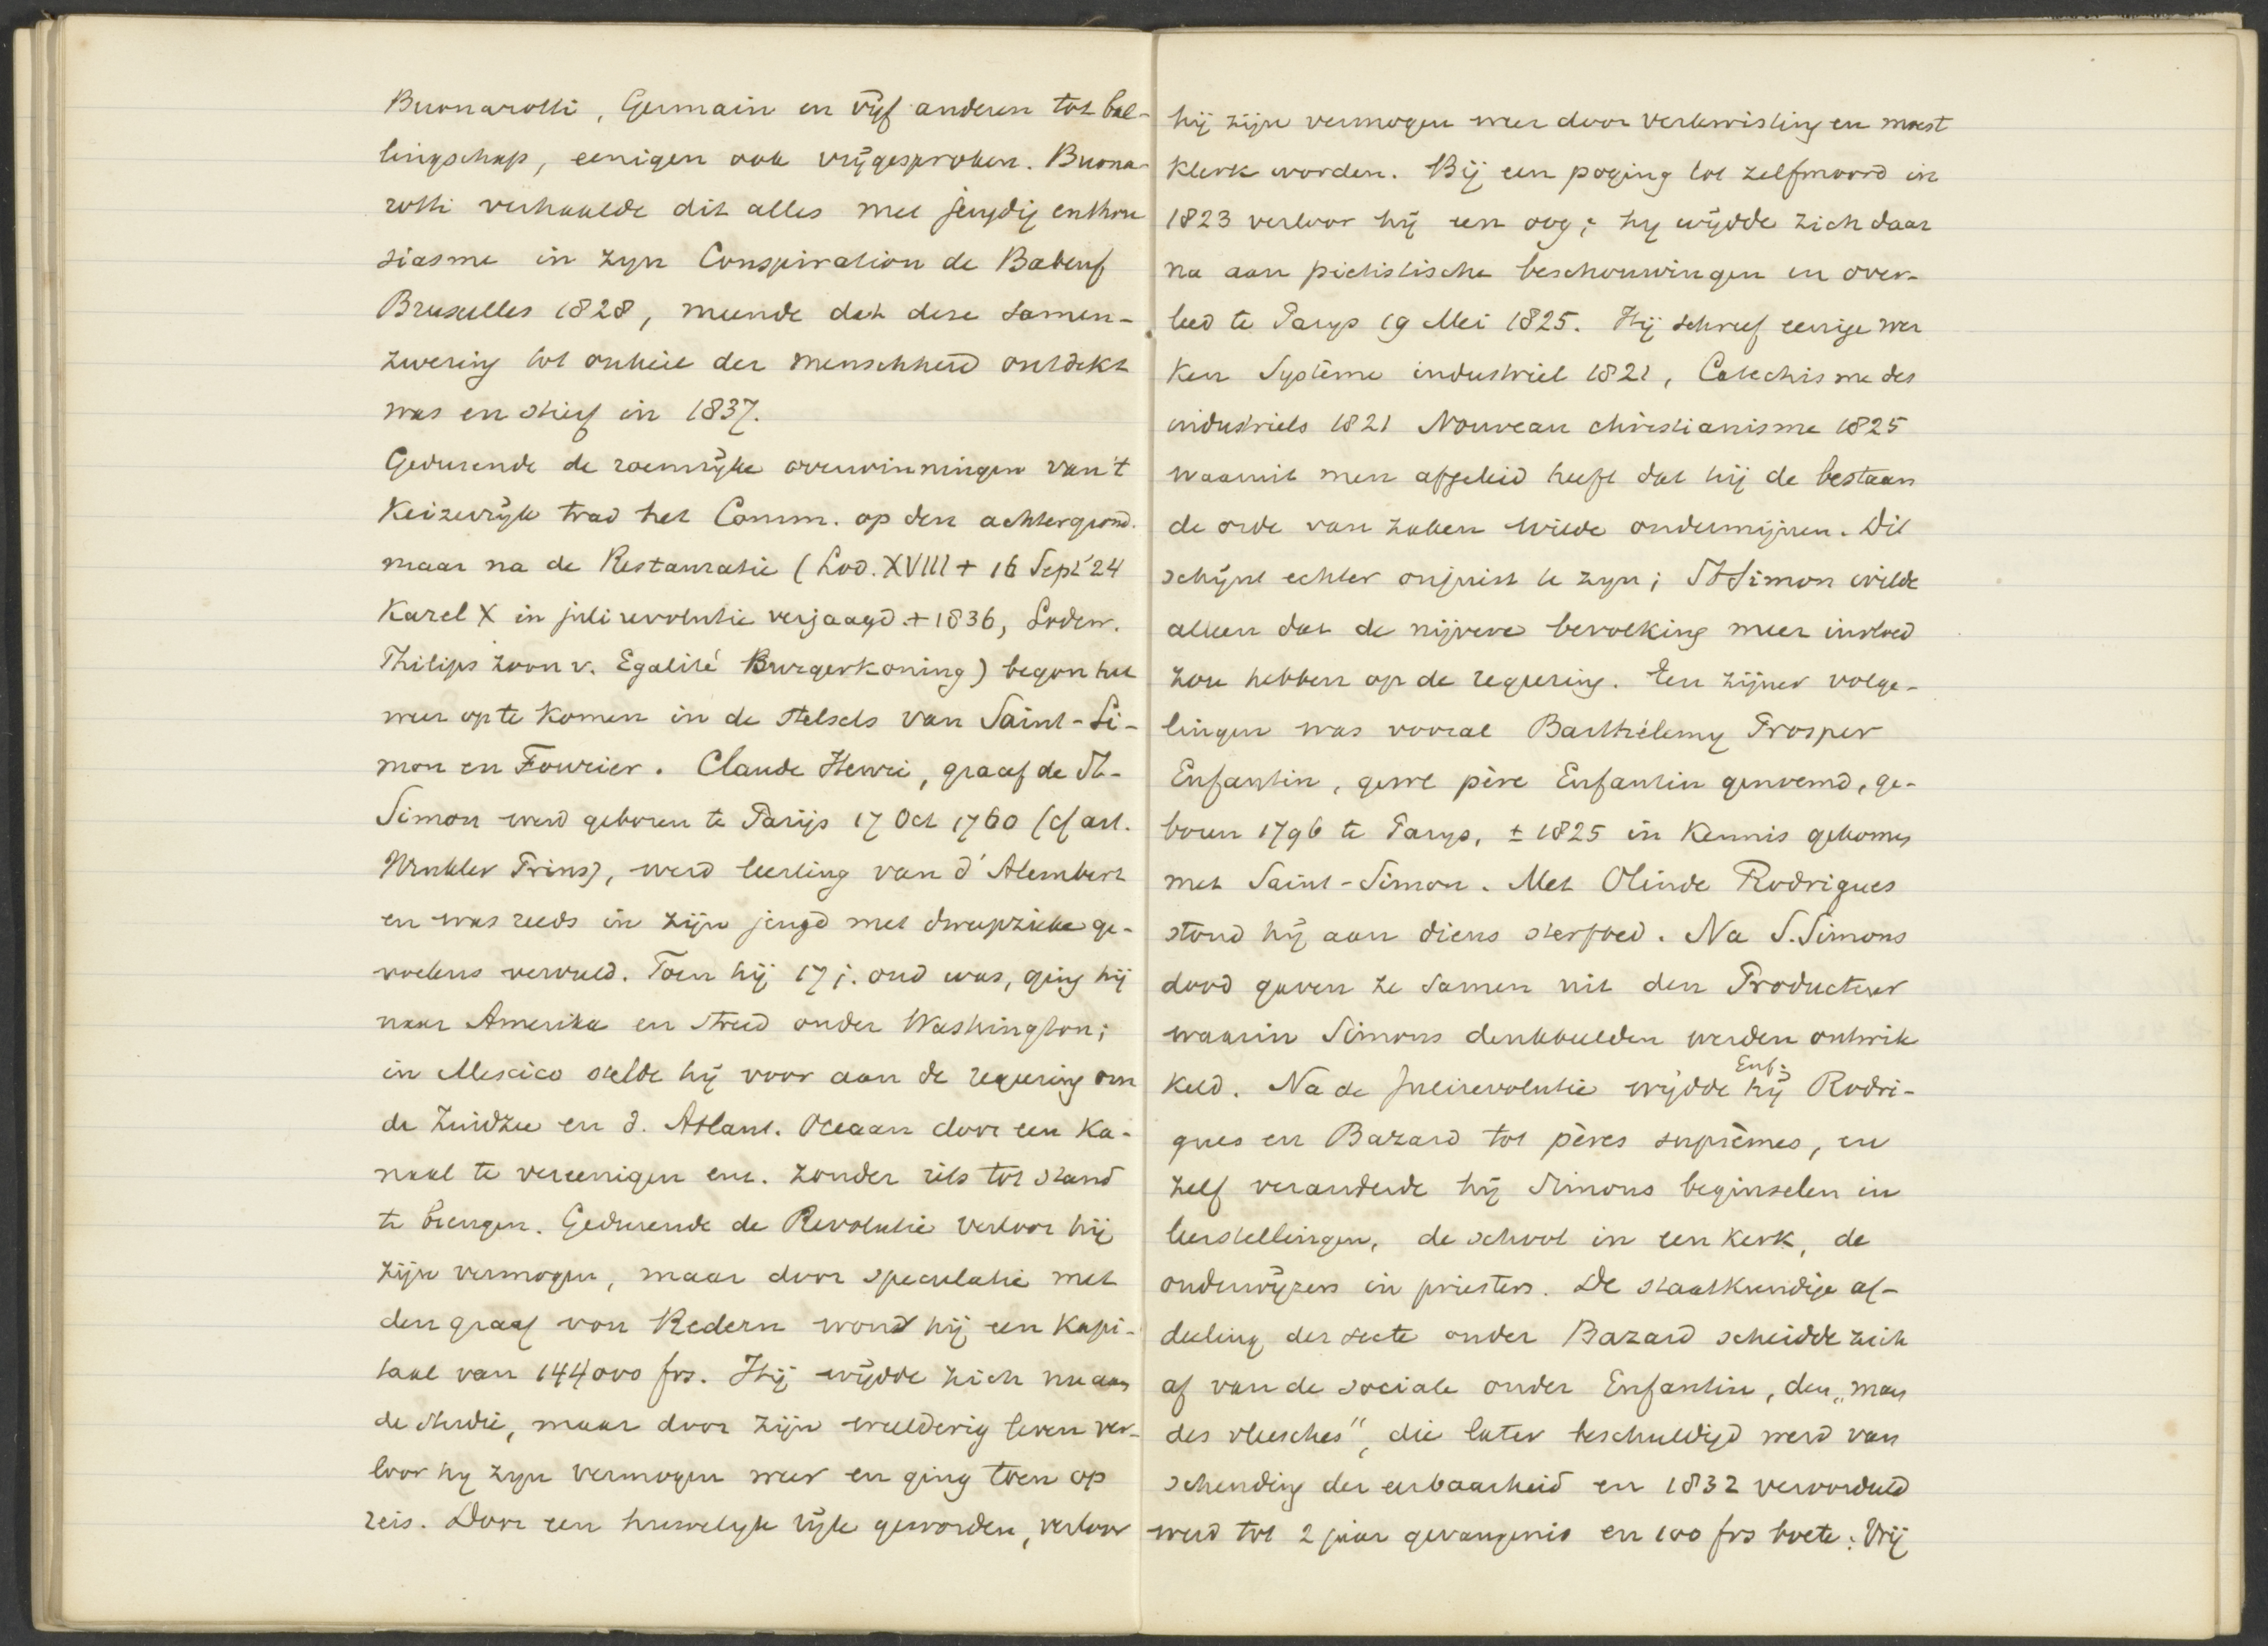 Buonarotti, Germain en vijf anderen tot bal-
lingschap, eenigen ook vrijgesproken. Buona-
rotti verhaalde dit alles met jeugdig enthou
siasme in zyn Conspiration de Babeuf
Bruxelles 1828, meende dat deze samen-
zwering tot onheil der menschheid ontdekt
was en stierf in 1837.
Gedurende de roemrijke overwinningen van 't
Keizerrijk trad het Comm. op den achtergrond.
maar na de Restauratie (Lod. XVIII + 16 Sept '24
Karel X in juli revolutie verjaagd + 1836, Lodew.
Philips zoon v. Egalité Burgerkoning) begon het
weer op te komen in de stelsels van Saint-Si-
mon en Fourier. Claude Henri, graaf de St-
Simon werd geboren te Parijs 17 Oct 1760 (cf art.
Winkler Prins), werd leerling van d'Alembert
en was reeds in zijn jeugd met dweepzieke ge-
voelens vervuld. Toen hij 17 j. oud was, ging hij
naar Amerika en streed onder Washington;
in Mexico stelde hij voor aan de regeering om
de Zuidzee en d. Atlant. Oceaan door een Ka-
naal te vereenigen enz. zonder iets tot stand
te brengen. Gedurende de Revolutie verloor hij
zijn vermogen, maar door speculatie met
den graaf von Redern wond hij een Kapi-
taal van 144000 frs. Hij wijdde zich nu aan
de studie, maar door zijn weelderig leven ver-
loor hy zyn vermogen weer en ging toen op
reis. Door een huwelyk rijk geworden, verloor
hij zijn vermogen weer door verkwisting en moest
Klerk worden. Bij een poging tot zelfmoord in
1823 verloor hij een oog; hy wijdde zich daar
na aan piëtistische beschouwingen en over-
leed te Parys 19 Mei 1825. Hij schreef eenige wer
ken Système industriel 1821, Catechisme des
industriels 1821 Nouveau christianisme 1825
waaruit men afgeleid heeft dat hij de bestaan
de orde van zaken wilde ondermijnen. Dit
schijnt echter onjuist te zyn; St Simon wilde
alleen dat de nijvere bevolking meer invloed
zou hebben op de regeering. Een zijner volge-
lingen was vooral Barthélemy Prosper
Enfantin, gewl père Enfantin genoemd, ge-
boren 1796 te Parys, ± 1825 in Kennis gekomen
met Saint-Simon. Met Olinde Rodrigues
stond hij aan diens sterfbed. Na S. Simons
dood gaven ze samen uit den Producteur
waarin Simons denkbeelden werden ontwik
keld. Na de Julirevolutie wijdde hij Enf: Rodri-
gues en Bazard tot pères suprèmes, en
zelf veranderde hij Simons beginselen in
leerstellingen, de school in een Kerk, de
onderwijzers in priesters. De staatkundige af-
deeling der secte onder Bazard scheidde zich
af van de sociale onder Enfantin, den "man
des vleesches", die later beschuldigd werd van
schending der eerbaarheid en 1832 veroordeeld
werd tot 2 jaar gevangenis en 100 frs boete; Vrij